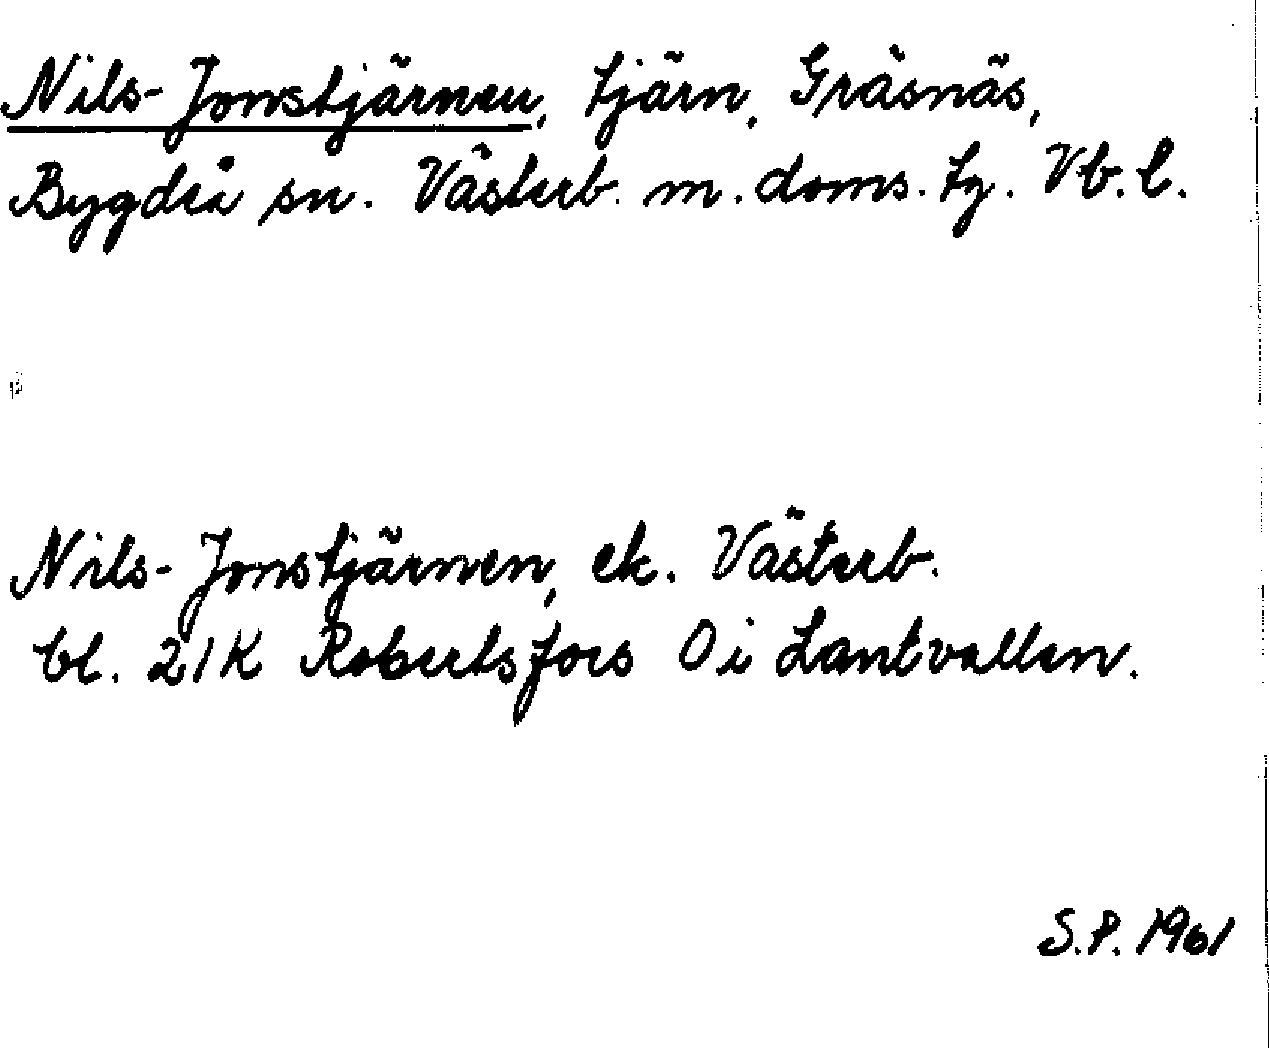 Nils-Jonstjärnen, tjärn, Gräsnäs,
Bygdeå sn. Västerb. m. doms. tg. Vb. l.
Nils-Jonstjärnen, ek. Västerb.
bl. 21K Robertsfors O i Lantvallen.
S.P. 1961